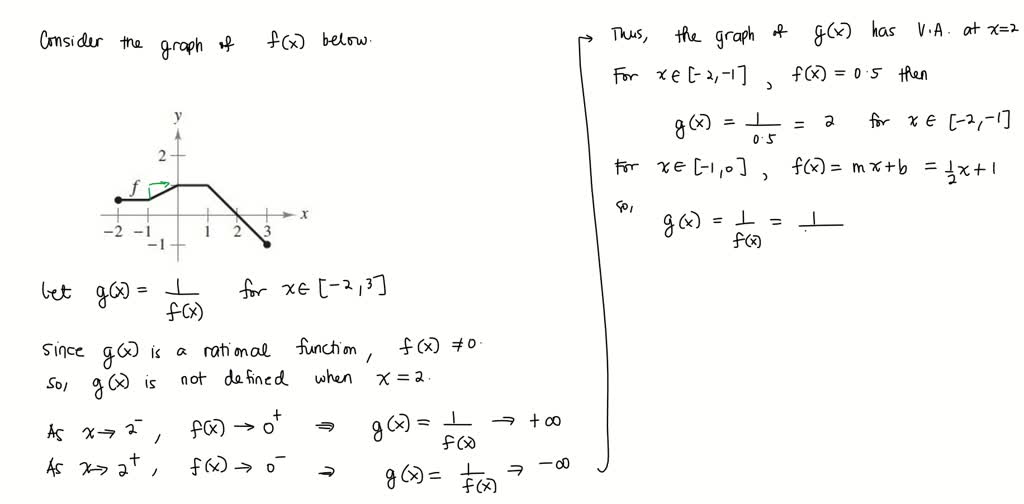 Consider the graph of f(x) below.
y
2
f
x
-2 -1 1 2 3
-1
Let g(x) = 1/f(x) for x∈[-2,3]
Since g(x) is a rational function, f(x) ≠ 0.
So, g(x) is not defined when x = 2.
As x→2⁻, f(x)→0⁺ ⇒ g(x) = 1/f(x) → +∞
As x→2⁺, f(x)→0⁻ ⇒ g(x) = 1/f(x) → -∞
Thus, the graph of g(x) has V.A. at x=2
For x∈[-2,-1], f(x) = 0.5 then
g(x) = 1/0.5 = 2 for x∈[-2,-1]
For x∈[-1,0], f(x) = mx+b = 1/2x+1
so,
g(x) = 1/f(x) = 1/